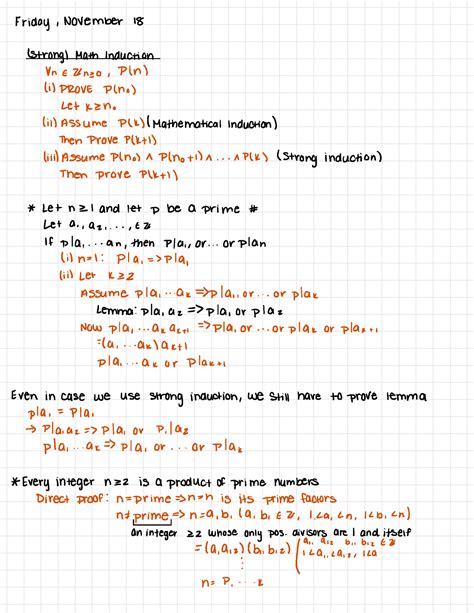 Friday, November 18
(Strong) Math Induction
∀n ∈ ℤn≥0, P(n)
(i) PROVE P(n₀)
Let k≥n₀
(ii) Assume P(k) (Mathematical Induction)
Then Prove P(k+1)
(iii) Assume P(n₀) ∧ P(n₀+1) ∧ ... ∧ P(k) (Strong induction)
Then prove P(k+1)
* Let n≥1 and let p be a prime #
Let a₁, a₂, ..., ∈ ℤ
If p|a₁ ... an, then P|a₁, or ... or p|an
(i) n=1: P|a₁ => p|a₁
(ii) Let k≥2
Assume p|a₁ ... ak => p|a₁, or ... or p|ak
Lemma: p|a₁ a₂ => p|a₁ or p|a₂
Now p|a₁ ... ak ak+1 => p|a₁ or ... or p|ak or p|ak+1
=(a₁ ... ak) ak+1
p|a₁ ... ak or P|ak+1
Even in case we use strong induction, we still have to prove lemma
p|a₁ = P|a₁
→ P|a₁a₂ => P|a₁ or P|a₂
p|a₁ ... ak => P|a₁ or ... or P|ak
* Every integer n≥2 is a product of prime numbers
Direct proof: n=prime => n=n is its prime factors
n≠prime => n=a₁b₁ (a₁ b₁ ∈ ℤ, 1<a₁<n, 1<b₁<n)
an integer ≥2 whose only pos. divisors are 1 and itself
= (a₁,a₁₂) (b₁, b₁₂)
⋮
n= P₁ ...